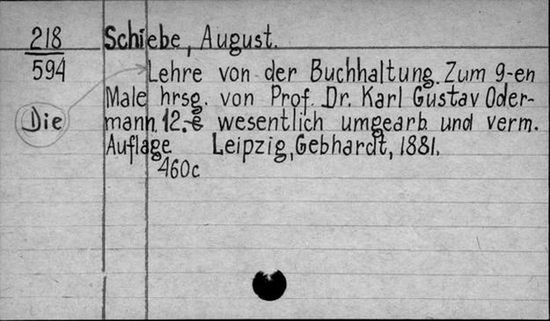 218 Schiebe, August.
594 Lehre von der Buchhaltung. Zum 9-en
Male hrsg. von Prof. Dr. Karl Gustav Oder-
Die mann. 12.-e wesentlich umgearb. und verm.
Auflage Leipzig, Gebhardt, 1881.
460c